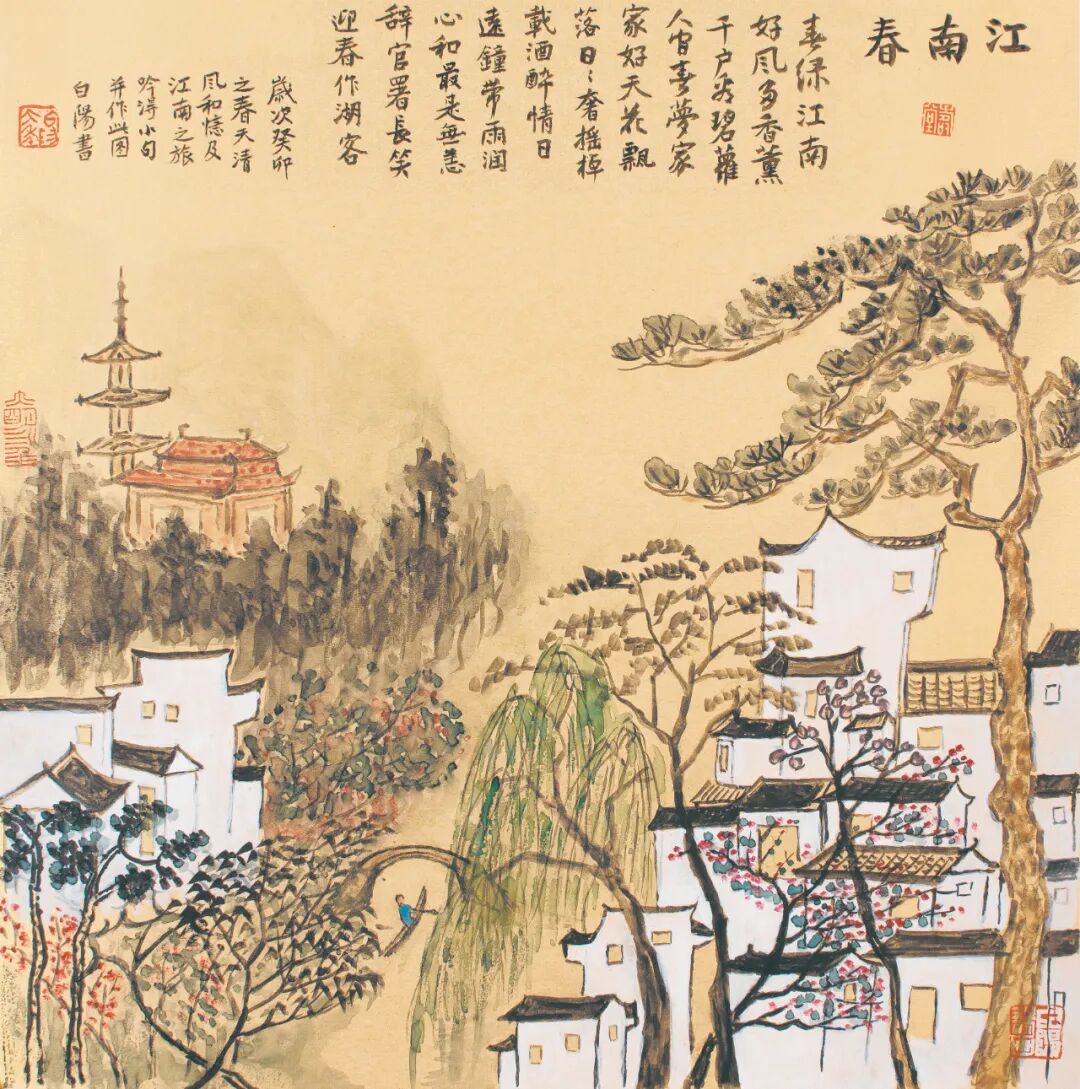 江南春
春绿江南
好风多香薰
千户碧蘿
人春夢家
家好天花飄
落日〻奢摇棹
載酒醉情日
遠鐘带雨润
心和最是無恙
辞官署長笑
迎春作湖客
歲次癸卯
之春天清
风和憶及
江南之旅
吟得小句
并作此图
白陽書